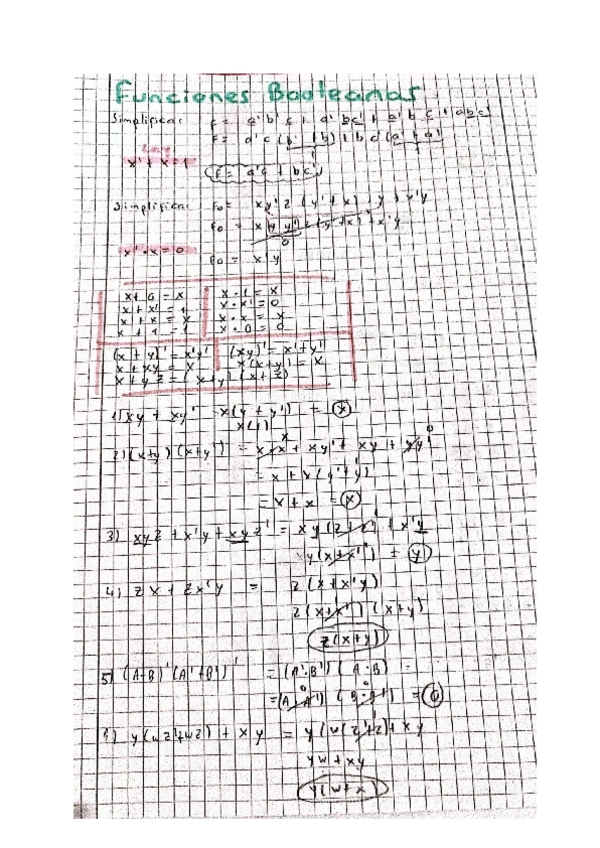 Funciones Booleanas
Simplificar f = a'b'c + a'bc + a'bc' + abc'
F = a'c (b' + b) + bc' (a + a')
x' + x = 1
F = a'c + bc'
Simplificar Fo = xy'z (y' + x) + y + x'y
Fo =
x' · x = 0 Fo = x y
x + 0 = x x · 1 = x
x + x' = 1 x · x' = 0
x + x = x x · x = x
x + 1 = 1 x · 0 = 0
(x + y)' = x'y' (xy)' = x' + y'
x + xy = x x(x+y) = x
x + yz = (x+y) (x+z)
1) xy + xy' = x(y + y') = x
x(1)
2) (x+y) (x+y') = x·x + xy' + xy + yy'
= x + x(y' + y)
= x + x = x
3) xyz + x'y + xyz' = xy(z + z') + x'y
y(x + x') = y
4) zx + zx'y = z(x + x'y)
z(x + x') (x+y)
z(x+y)
5) (A+B)' (A'+B')' = (A'·B') (A·B) =
= (A·A') (B·B') = 0
6) y(wz' + wz) + xy = y(w(z' + z)) + xy
yw + xy
y(w+x)